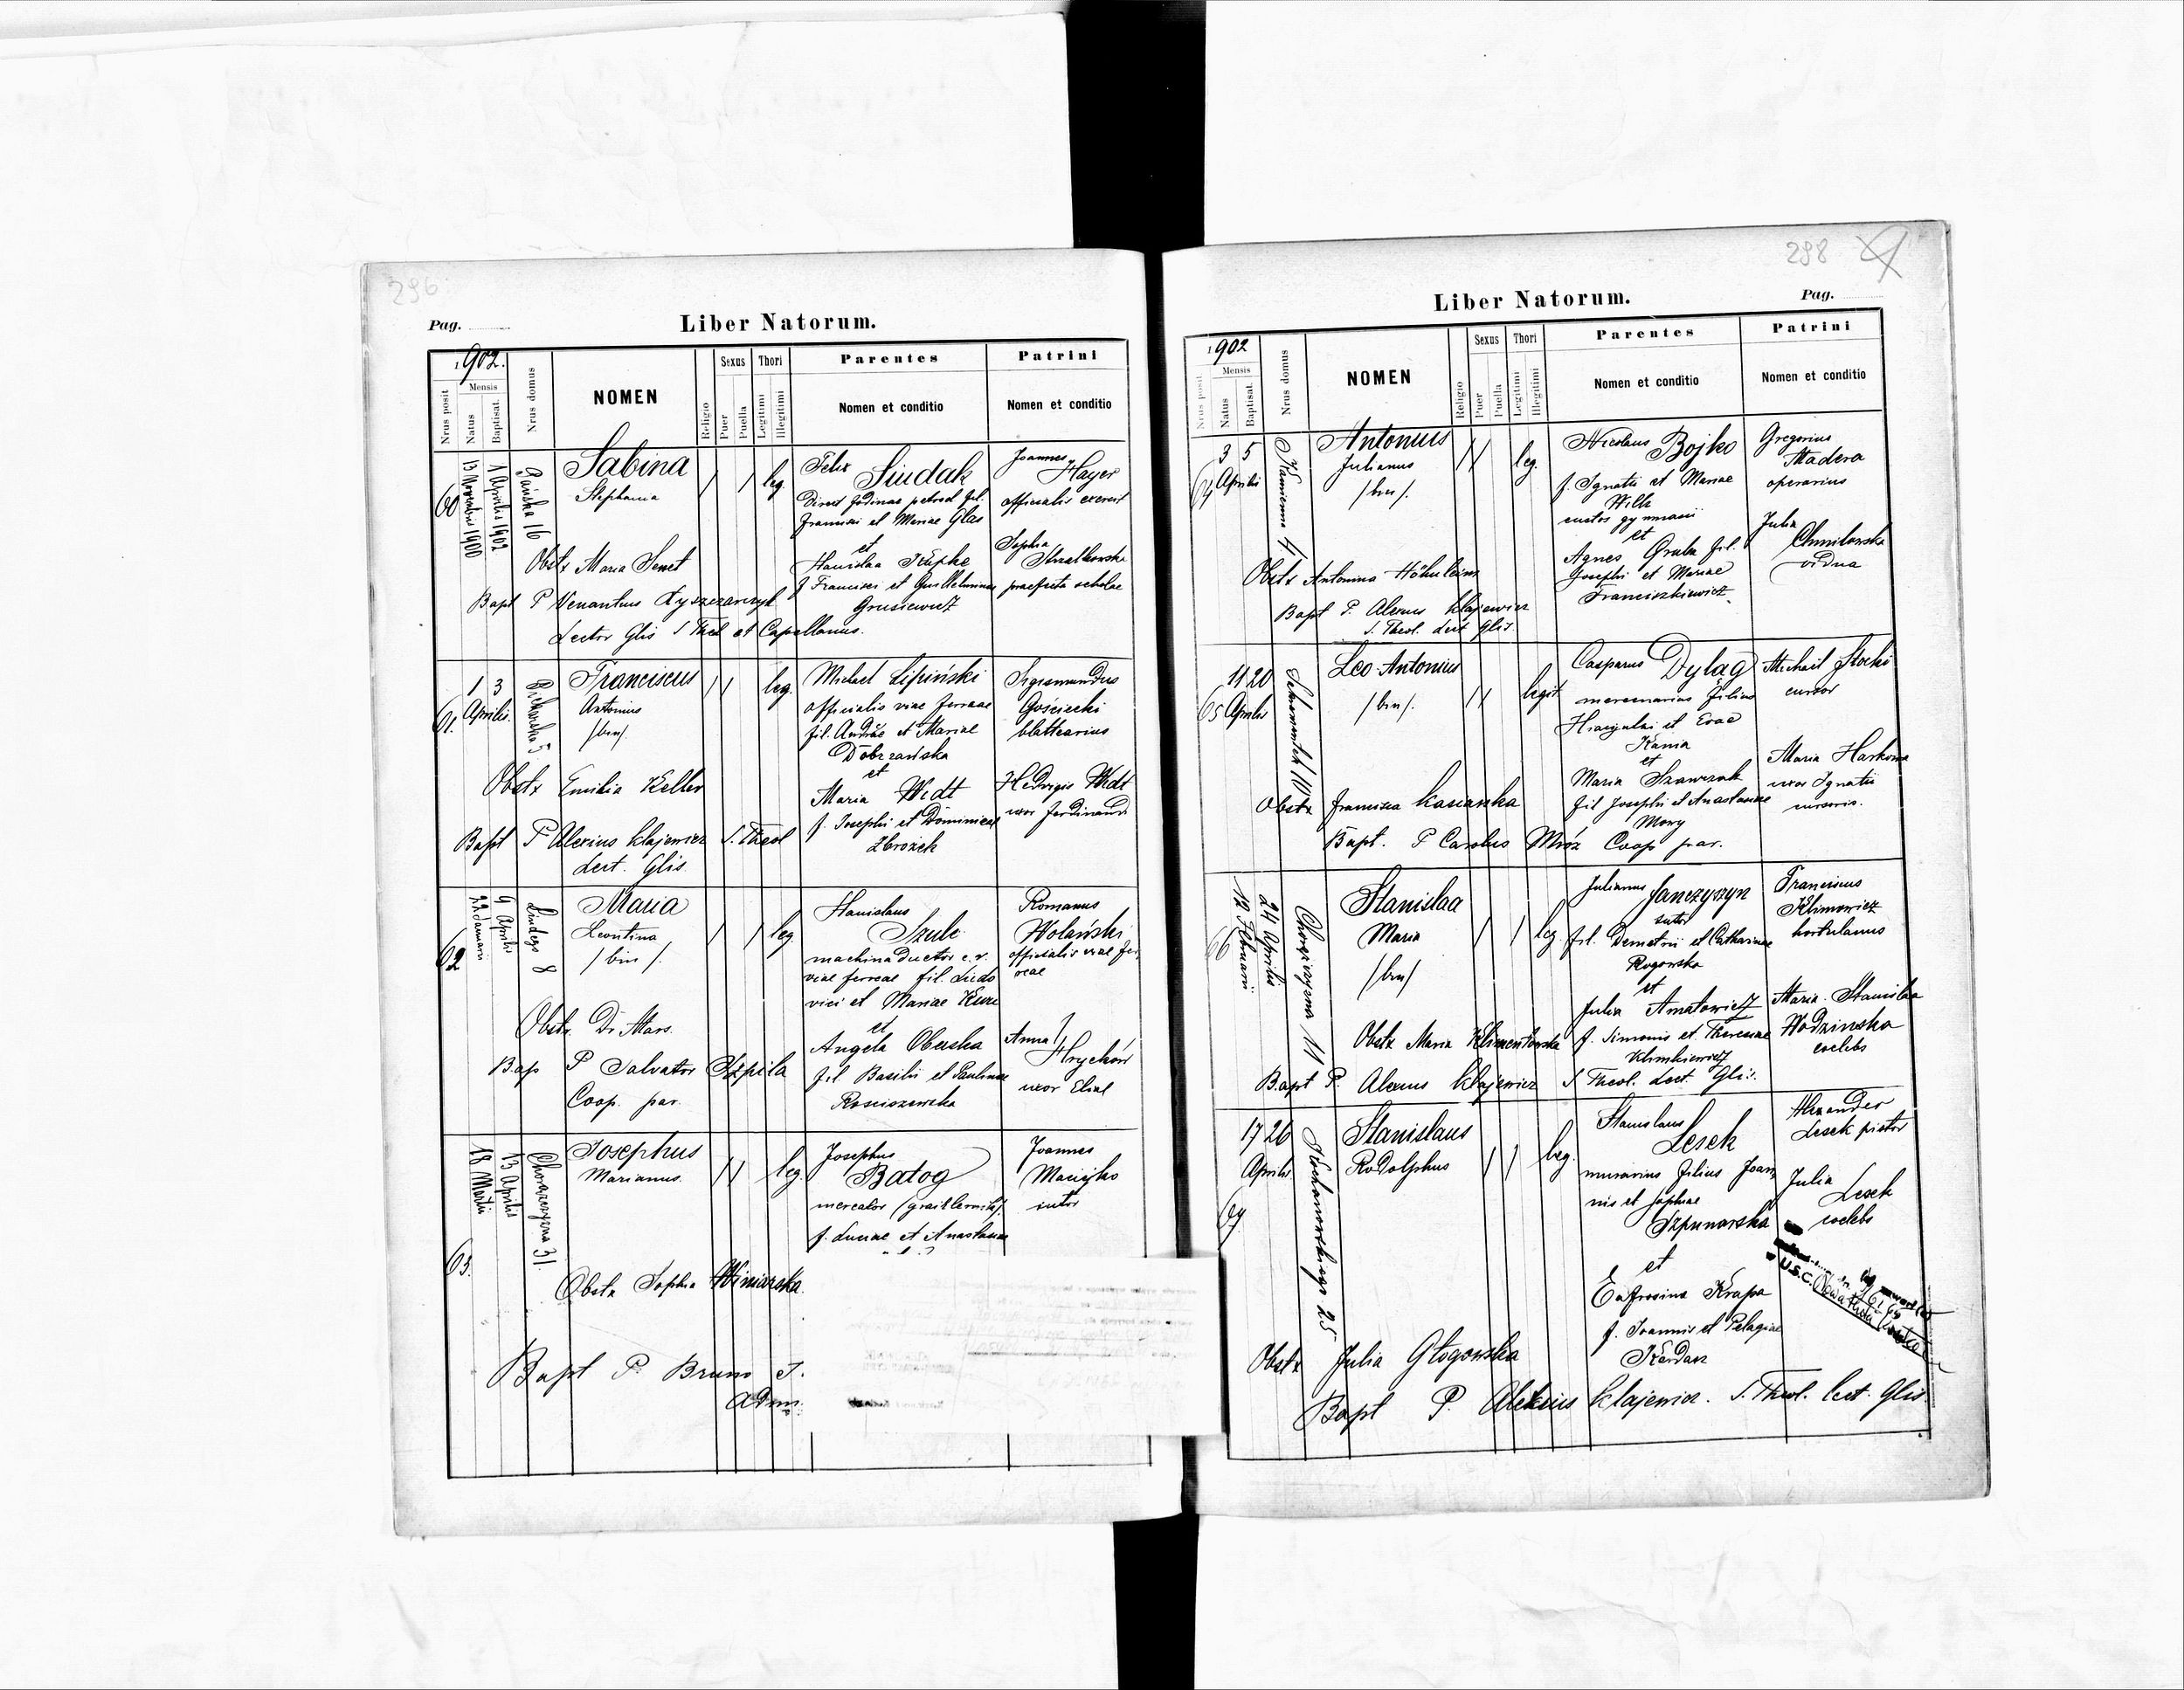 296
Liber Natorum.
Pag.
1902.
Mensis
Nrus posit
Natus
Baptisat.
Nrus domus
NOMEN
Religio
Sexus
Puer
Puella
Thori
Legitimi
Illegitimi
Parentes
Nomen et conditio
Patrini
Nomen et conditio
60
13 Novembris 1900
1 Aprilis 1902
Pańska 16
Sabina
Stephania
leg
Felix
Siudak
fil.
Francisci et Mariae Glas
et
Stanislaa
f Francisci et Guillelminae
Grusiewicz
Joannes
Hayer
officialis
Sophia
Strzałkowska
praefecta scholae
Obstx Maria Senet
Bapt P Venantius Łyszczarczyk
Lector Glis S Theol et Capellanus.
61.
1 3
Aprilis.
5
Franciscus
Antonius
/bin/.
leg.
Michael Lipiński
officialis viae ferreae
fil. Andreae et Mariae
Dobrzańska
et
Maria Wedt
f. Josephi et Dominicae
Zbrożek
Sigismundus
Gościecki
blattearius
Hedvigis Wedt
uxor Ferdinandi
Obstx Emilia Keller
Bapt P Alexius Klajewicz S. Theol
Lect. Glis.
62
22 Januarii
9 Aprilis
Lindego 8
Maria
Leontina
/bin/.
leg.
Stanislaus
Szulc
machinae ductor c. r.
viae ferreae fil. Ludo
vici et Mariae
et
Angela
fil Basilii et Paulinae
Rosciszewska
Romanus
Wolański
officialis viae fer
reae
Anna
Hryckow
uxor Eliae
Obstx. Dr Mars.
Bap P Salvator Szpila
Coop. par.
63.
18 Martii
13 Aprilis
Chorążczyzna 31.
Josephus
Marianus.
leg.
Josephus
Batog
mercator
f. Lucae et Anastasiae
Joannes
Maciejko
sutor
Obstx Sophia Winiarska.
Bapt P. Bruno J.
Adm.
298
Liber Natorum.
Pag.
1902
Mensis
Nrus posit
Natus
Baptisat.
Nrus domus
NOMEN
Religio
Sexus
Puer
Puella
Thori
Legitimi
Illegitimi
Parentes
Nomen et conditio
Patrini
Nomen et conditio
64
3 5
Aprilis
Kamienna 4
Antonius
Julianus
/bin/.
leg.
Nicolaus Bojko
f. Ignatii et Mariae
Wilk
custos gymnasii
et
Agnes Gruba fil.
Josephi et Mariae
Franciszkiewicz.
Gregorius
Madera
operarius
Julia
Chmilowska
vidua
Obstx Antonina
Bapt P. Alexius Klajewicz
S. Theol. Lect Glis.
65
11 20
Aprilis
10
Leo Antonius
/bin/.
legit.
Casparus Dylag
mercenarius filius
et Evae
Kania
et
Maria Szawczak
fil Josephi et Anastasiae
Mory
Michael Stocki
cursor
Maria
uxor Ignatii
cursoris.
Obstx Francisca Kasianka
Bapt. P Carolus Mróz Coop par.
66
12 Februarii
24 Aprilis
Chorążczyzna 11
Stanislaa
Maria
/bin/
leg
Julianus Janczyszyn
sutor
fil. Demetrii et Catharinae
Rogowska
et
Julia Amatowicz
f. Simonis et Theresiae
Klimkiewicz
Franciscus
Klimowicz
hortulanus
Maria Stanislaa
Wodzinska
coelebs
Obstx Maria Klimentowska
Bapt P. Alexius Klajewicz S Theol. Lect. Glis.
67
17 26
Aprilis
Kochanowskiego 25
Stanislaus
Rudolphus
leg.
Stanislaus
Lesek
murarius filius Joan
nis et Sophiae
Szpunarska
et
Eufrosina Krapa
f. Joannis et Pelagiae
Kordasz
Alexander
Lesek pistor
Julia
Lesek
coelebs
U.S.C.
Obstx Julia Głogowska
Bapt P. Alexius Klajewicz. S. Theol. Lect. Glis.